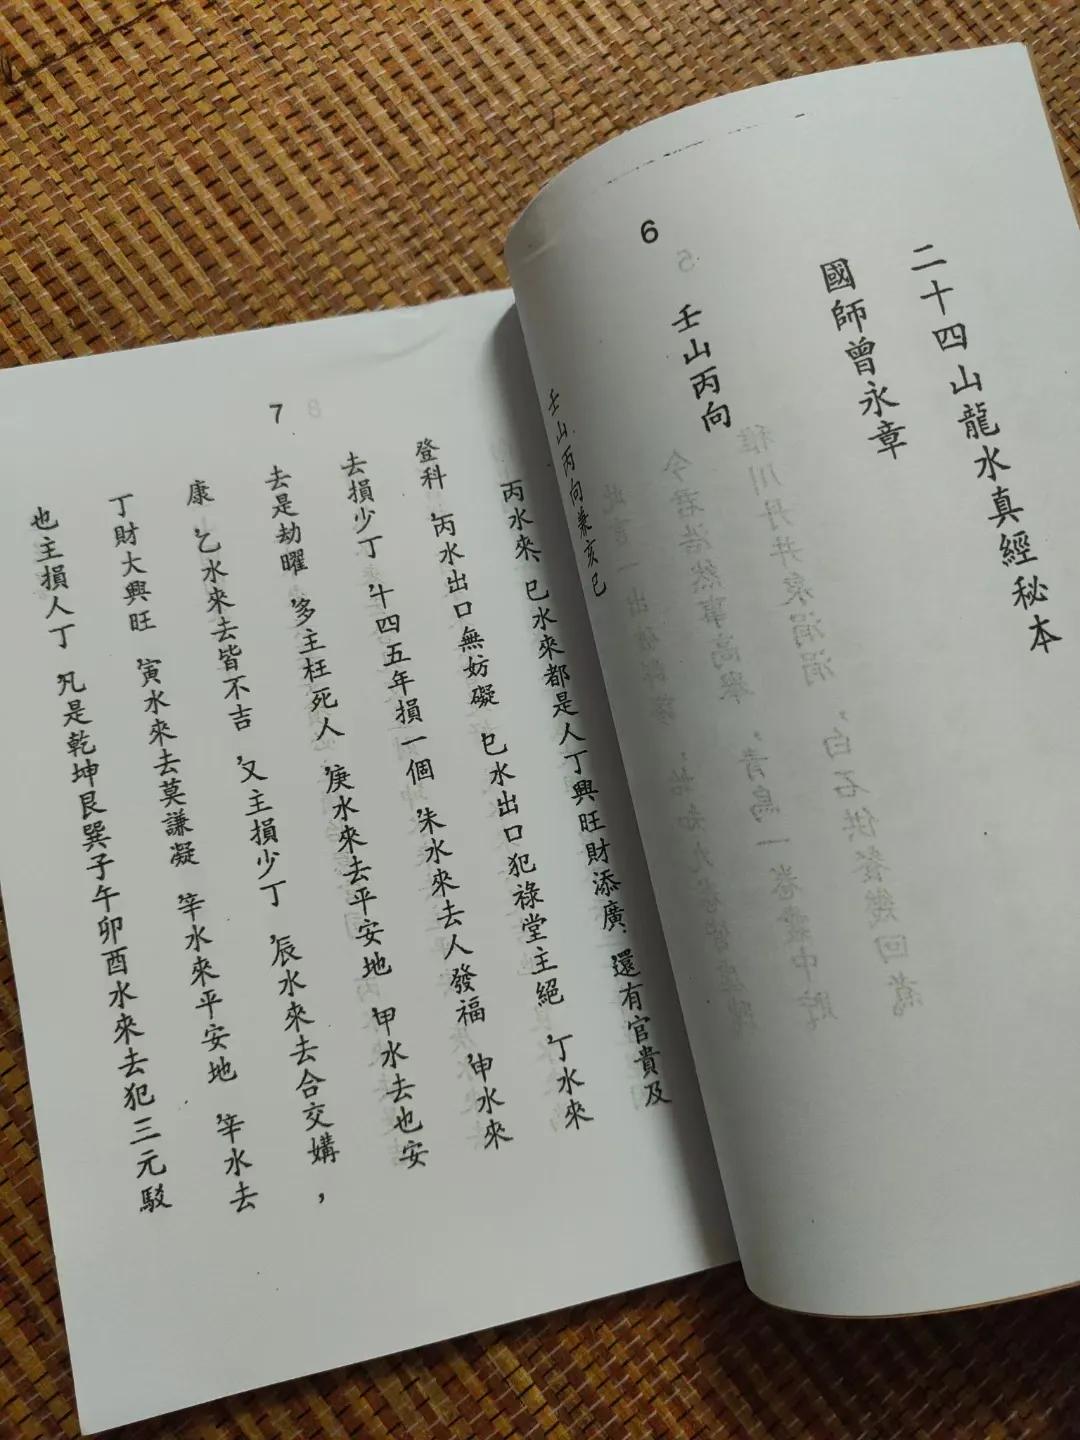 二十四山龍水真經秘本
國師曾永章
壬山丙向
6
壬山丙向兼亥巳
丙水來、巳水來都是人丁興旺財添廣、還有官貴及
登科，丙水出口無妨礙，巳水出口犯祿堂主絕，丁水來
去損少丁，十四五年損一個，未水來去人發福，申水來
去是劫曜，多主枉死人，庚水來去平安地，甲水去也安
康，乙水來去皆不吉，又主損少丁，辰水來去合交媾，
丁財大興旺，寅水來去莫謙凝，辛水來平安地，辛水去
也主損人丁，凡是乾坤艮巽子午卯酉水來去犯三元駁
7